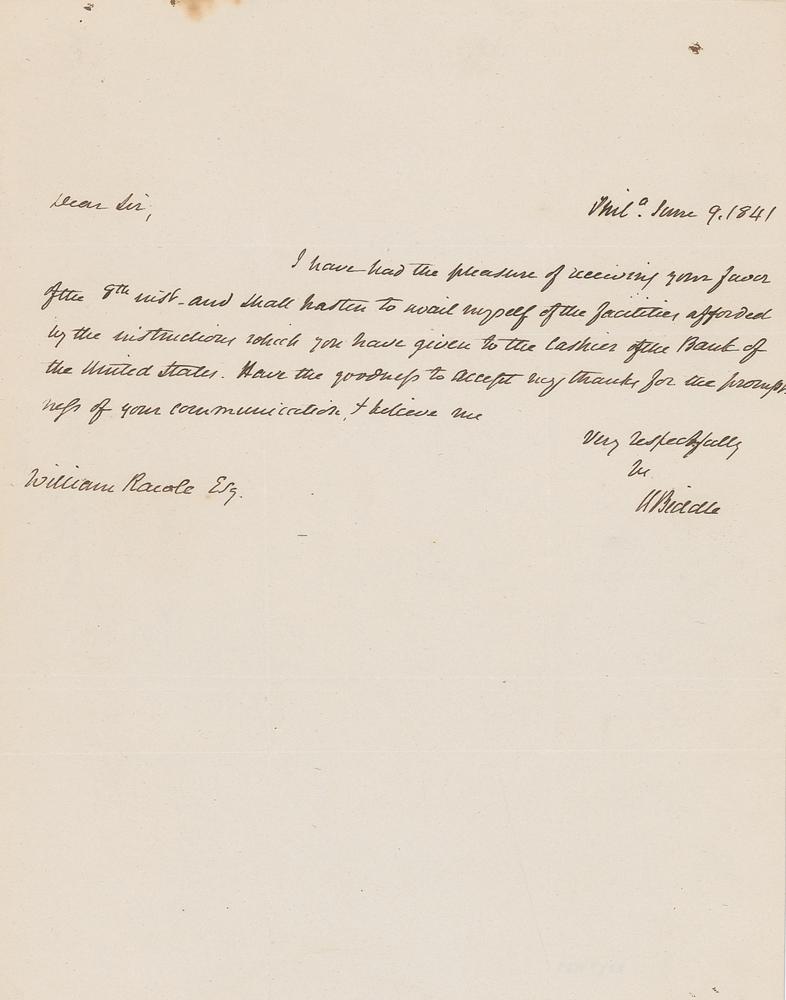 Phil.ᵃ June 9. 1841
Dear Sir,
I have had the pleasure of receiving your favor
of the 8th inst. and shall hasten to avail myself of the facilities afforded
by the instructions which you have given to the Cashier of the Bank of
the United States. Have the goodness to accept my thanks for the prompt-
ness of your communication, & believe me
Very respectfully
Yrs
N Biddle
William Rawle Esq.